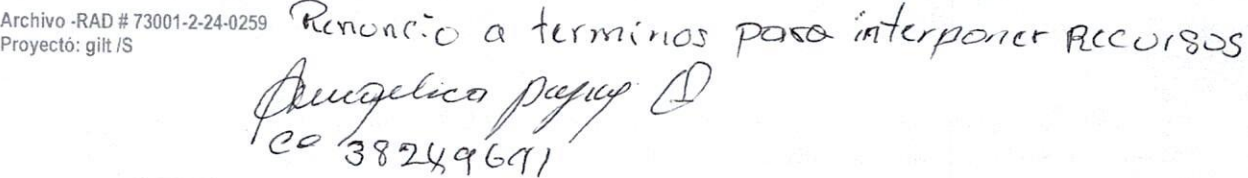 Archivo -RAD # 73001-2-24-0259
Proyectó: gilt /S
Renuncio a terminos para interponer Recursos
Angelica
cc 38249691